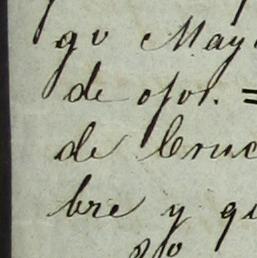 go May
de ofor. =
de Cruc
bre y qu